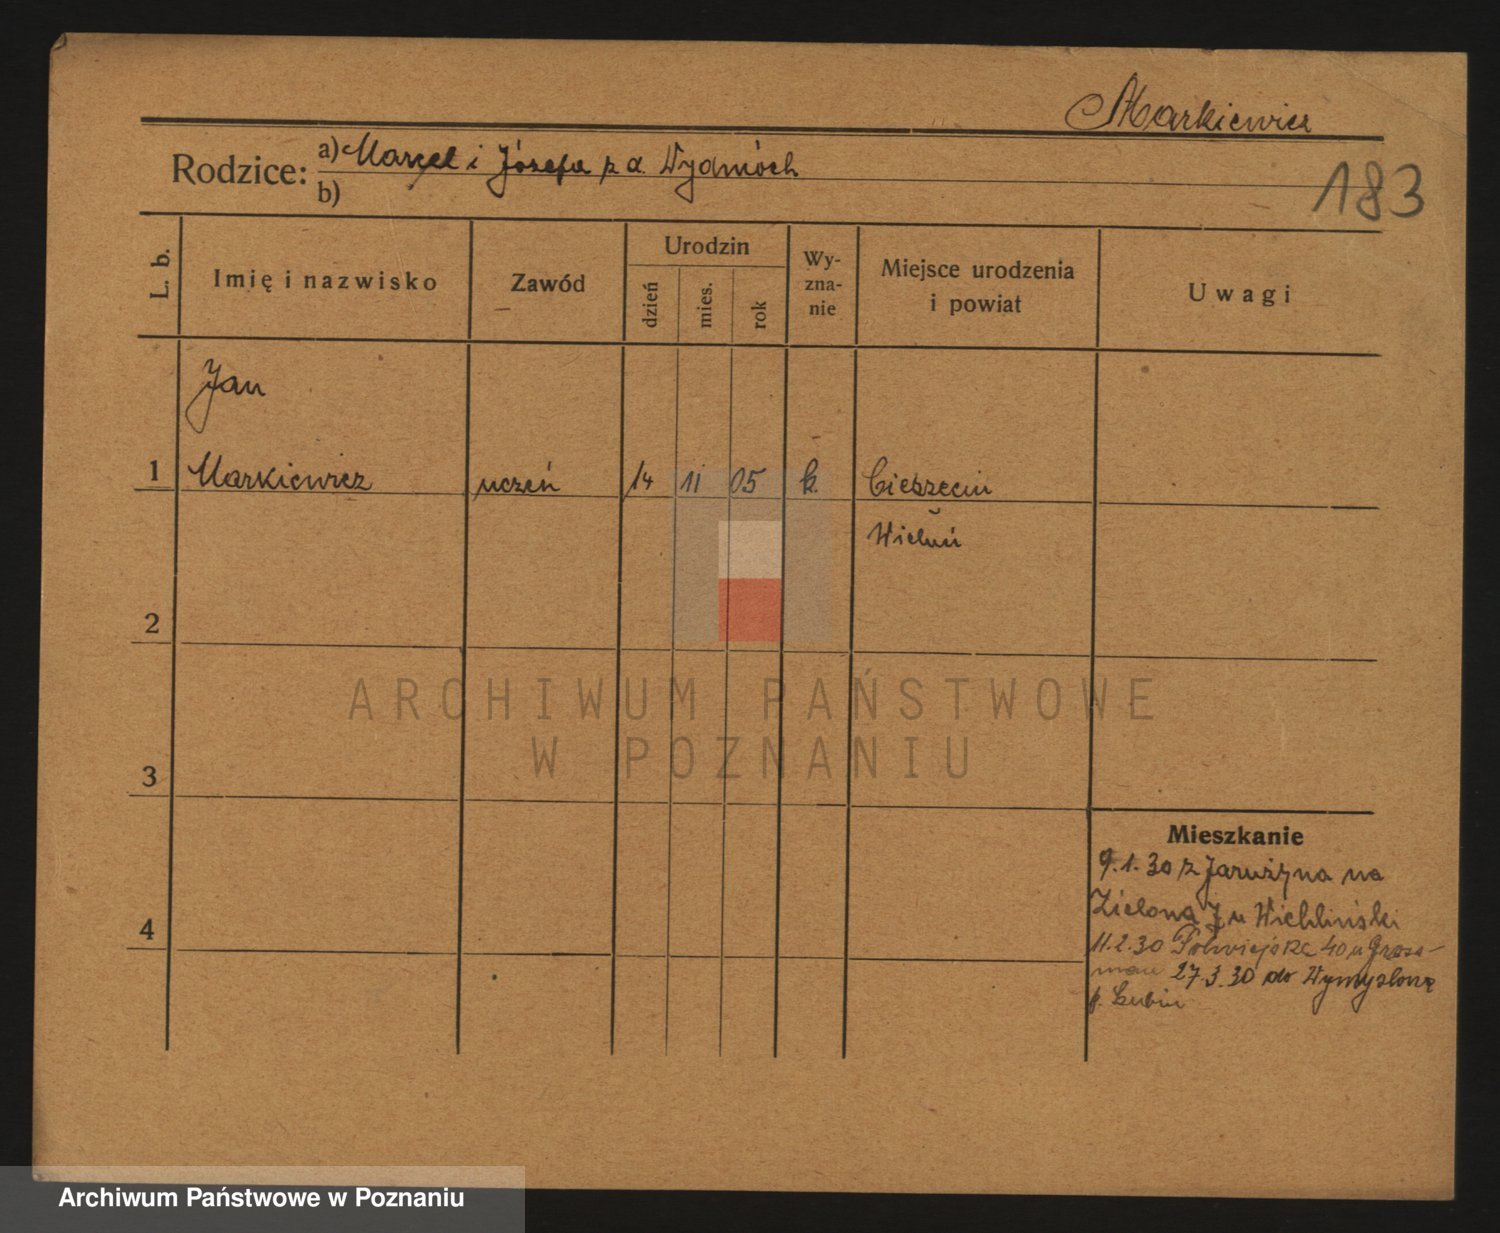 Markiewicz
Rodzice: a) Marcel i Józefa z d. Wydmóch
b)
183
L. b.
Imię i nazwisko
Zawód
Urodzin
dzień
mies.
rok
Wy-
zna-
nie
Miejsce urodzenia
i powiat
Uwagi
Jan
1 Markiewicz uczeń 14 11 05 k. Cieszęcin
Wieluń
2
3
4
ARCHIWUM PAŃSTWOWE
W POZNANIU
Mieszkanie
9.1.30 z Jarużyna na
Zielona u Wichliński
11.2.30 Półwiejska 40 u Grossmann
27.3.30 do Wymysłowa
p. Lubin
Archiwum Państwowe w Poznaniu